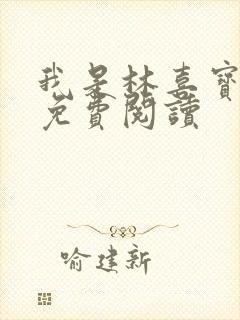 我是林喜寶
免費閱讀
喻建新